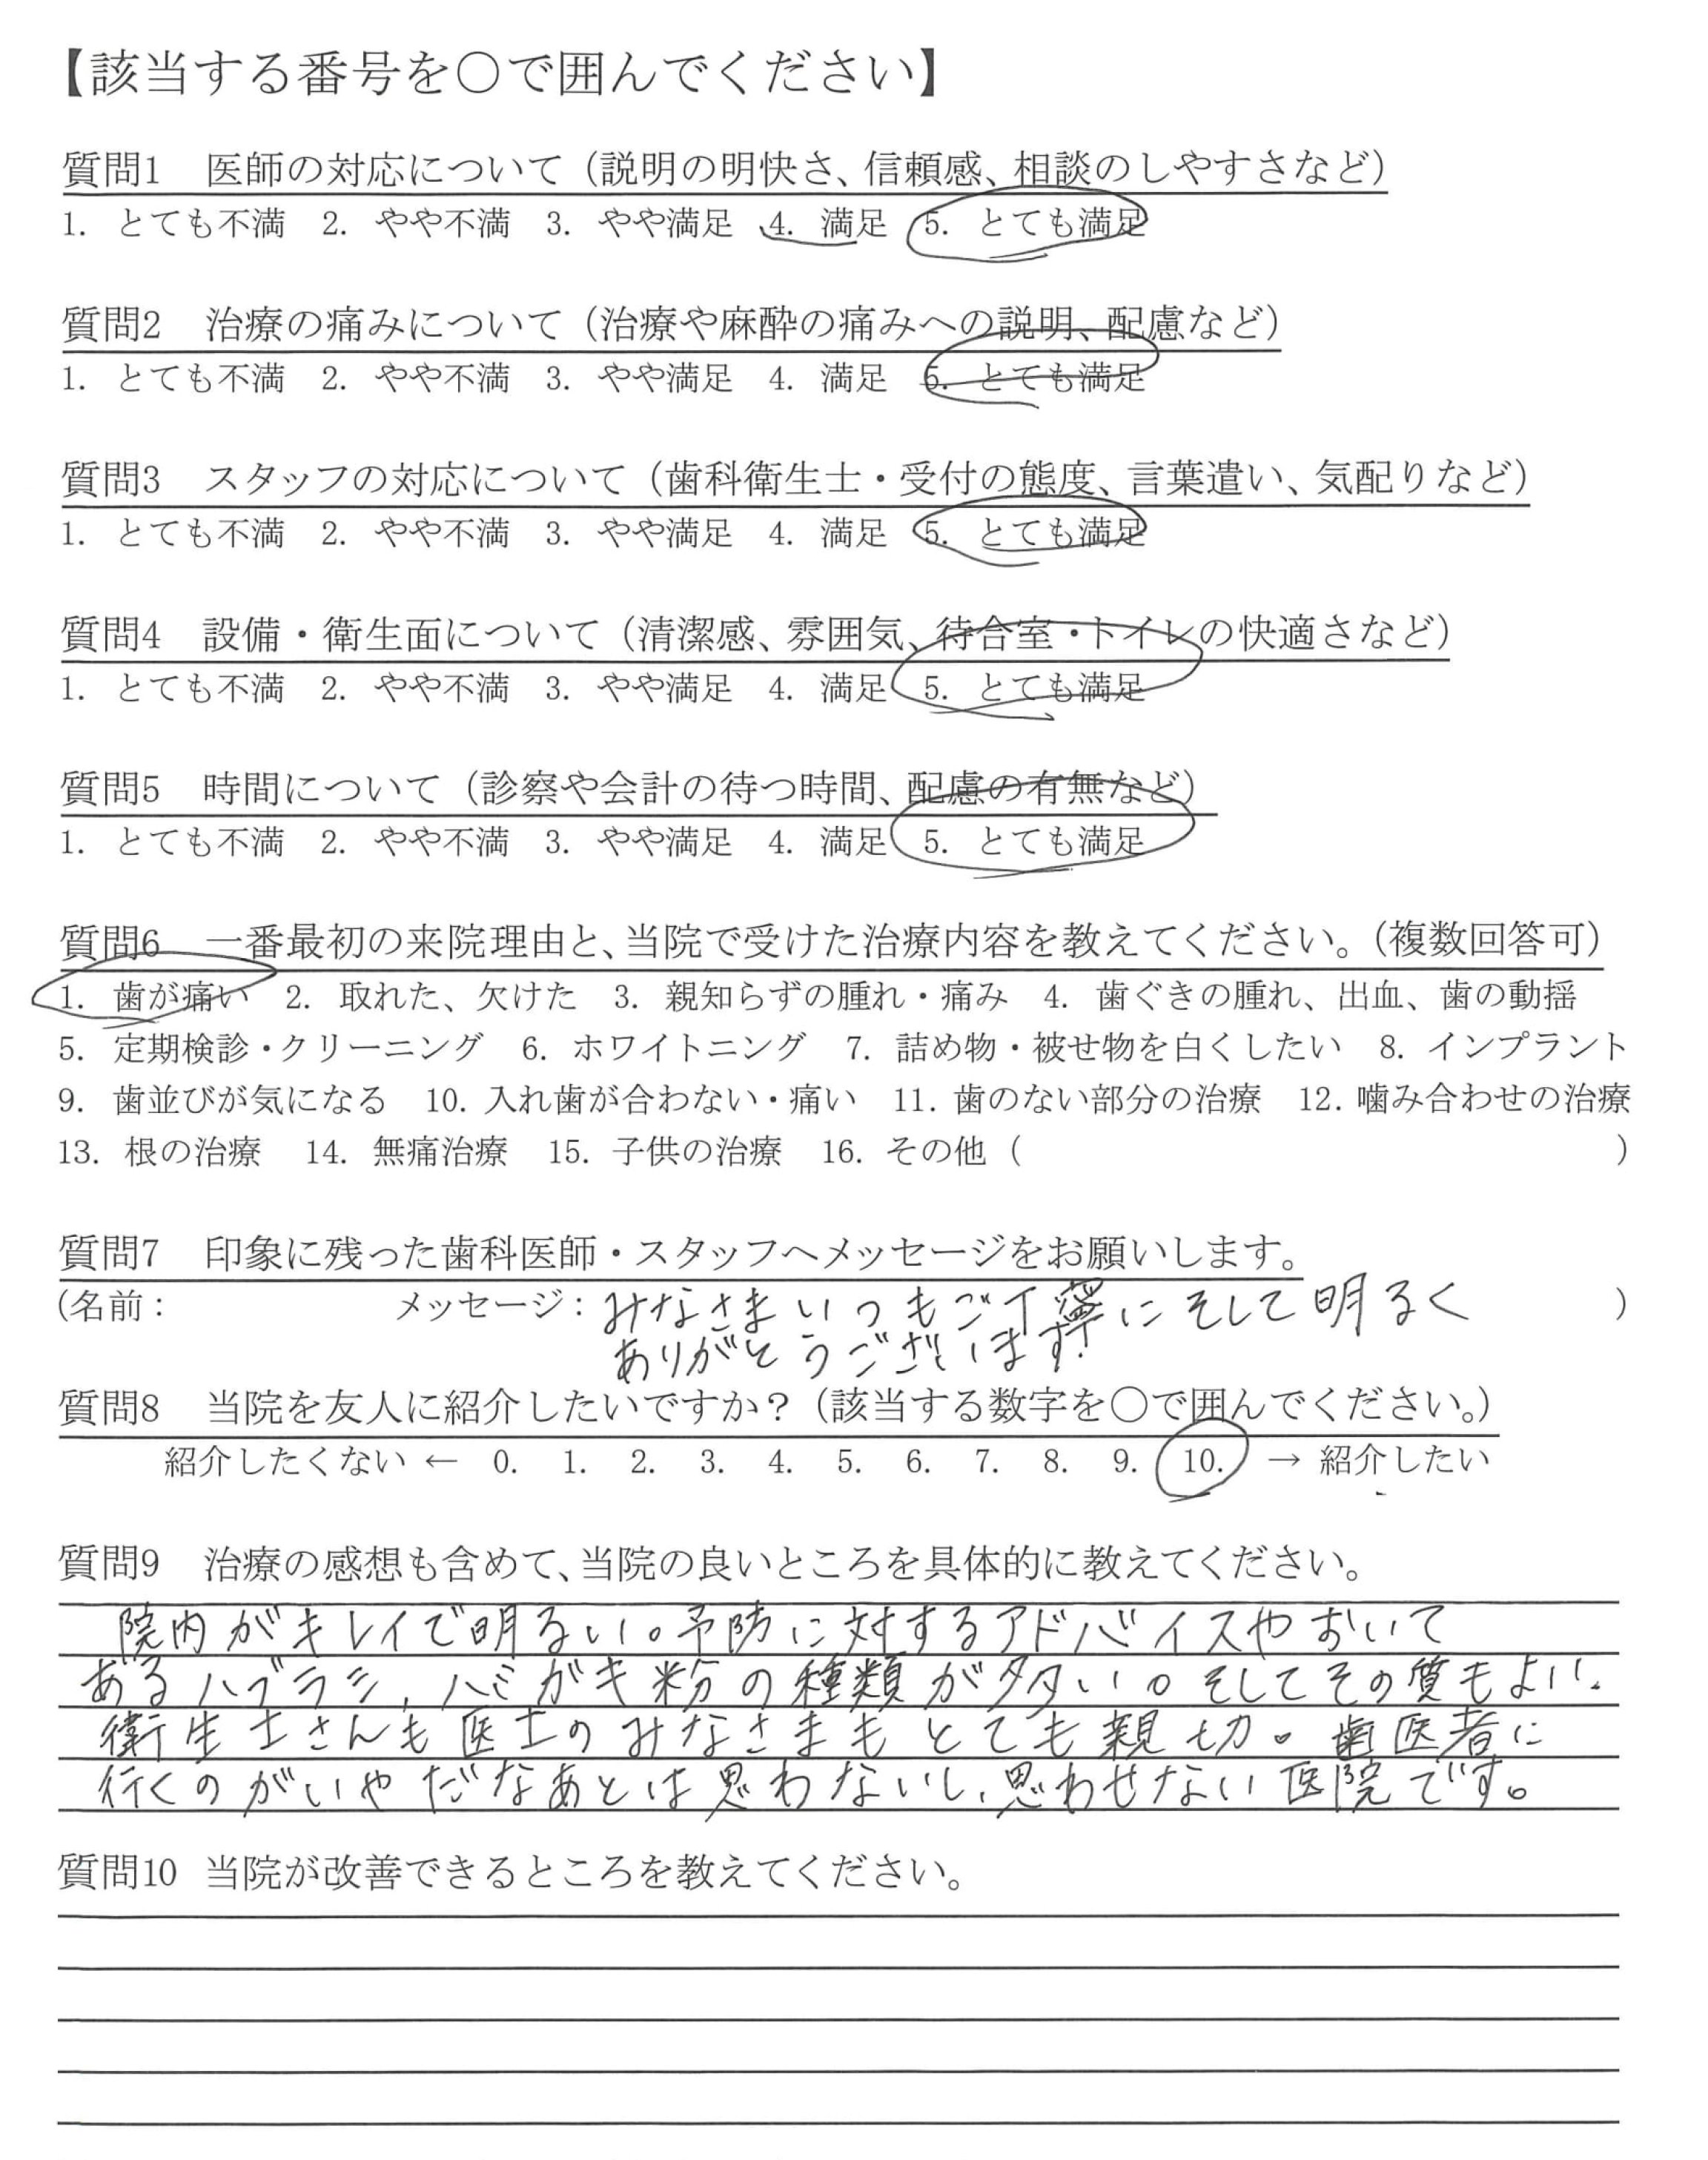 【該当する番号を○で囲んでください】
質問1 医師の対応について（説明の明快さ、信頼感、相談のしやすさなど）
1. とても不満 2. やや不満 3. やや満足 4. 満足 5. とても満足
質問2 治療の痛みについて（治療や麻酔の痛みへの説明、配慮など）
1. とても不満 2. やや不満 3. やや満足 4. 満足 5. とても満足
質問3 スタッフの対応について（歯科衛生士・受付の態度、言葉遣い、気配りなど）
1. とても不満 2. やや不満 3. やや満足 4. 満足 5. とても満足
質問4 設備・衛生面について（清潔感、雰囲気、待合室・トイレの快適さなど）
1. とても不満 2. やや不満 3. やや満足 4. 満足 5. とても満足
質問5 時間について（診察や会計の待つ時間、配慮の有無など）
1. とても不満 2. やや不満 3. やや満足 4. 満足 5. とても満足
質問6 一番最初の来院理由と、当院で受けた治療内容を教えてください。（複数回答可）
1. 歯が痛い 2. 取れた、欠けた 3. 親知らずの腫れ・痛み 4. 歯ぐきの腫れ、出血、歯の動揺
5. 定期検診・クリーニング 6. ホワイトニング 7. 詰め物・被せ物を白くしたい 8. インプラント
9. 歯並びが気になる 10. 入れ歯が合わない・痛い 11. 歯のない部分の治療 12. 噛み合わせの治療
13. 根の治療 14. 無痛治療 15. 子供の治療 16. その他（ ）
質問7 印象に残った歯科医師・スタッフへメッセージをお願いします。
（名前： メッセージ：みなさまいつもご丁寧にそして明るく ）
ありがとうございます!
質問8 当院を友人に紹介したいですか？（該当する数字を○で囲んでください。）
紹介したくない ← 0. 1. 2. 3. 4. 5. 6. 7. 8. 9. 10. → 紹介したい
質問9 治療の感想も含めて、当院の良いところを具体的に教えてください。
院内がキレイで明るい。予防に対するアドバイスやおいて
あるハブラシ、ハミガキ粉の種類が多い。そしてその質もよい。
衛生士さんも医士のみなさまもとても親切。歯医者に
行くのがいやだなあとは思わないし、思わせない医院です。
質問10 当院が改善できるところを教えてください。